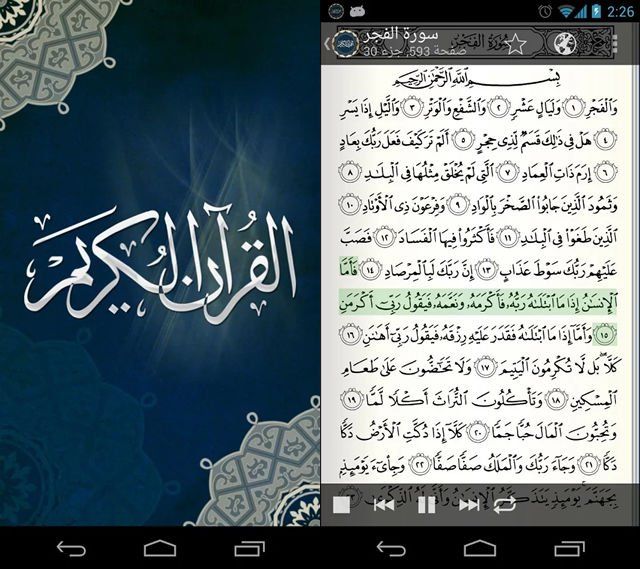 القرآن الكريم
2:26
سورة الفجر
صفحة 593, جزء 30
سُورَةُ الفَجْرِ
بِسْمِ اللَّهِ الرَّحْمَٰنِ الرَّحِيمِ
وَالْفَجْرِ ١ وَلَيَالٍ عَشْرٍ ٢ وَالشَّفْعِ وَالْوَتْرِ ٣ وَاللَّيْلِ إِذَا يَسْرِ
٤ هَلْ فِي ذَٰلِكَ قَسَمٌ لِّذِي حِجْرٍ ٥ أَلَمْ تَرَ كَيْفَ فَعَلَ رَبُّكَ بِعَادٍ
٦ إِرَمَ ذَاتِ الْعِمَادِ ٧ الَّتِي لَمْ يُخْلَقْ مِثْلُهَا فِي الْبِلَادِ ٨
وَثَمُودَ الَّذِينَ جَابُوا الصَّخْرَ بِالْوَادِ ٩ وَفِرْعَوْنَ ذِي الْأَوْتَادِ ١٠
الَّذِينَ طَغَوْا فِي الْبِلَادِ ١١ فَأَكْثَرُوا فِيهَا الْفَسَادَ ١٢ فَصَبَّ
عَلَيْهِمْ رَبُّكَ سَوْطَ عَذَابٍ ١٣ إِنَّ رَبَّكَ لَبِالْمِرْصَادِ ١٤ فَأَمَّا
الْإِنسَٰنُ إِذَا مَا ابْتَلَىٰهُ رَبُّهُ فَأَكْرَمَهُ وَنَعَّمَهُ فَيَقُولُ رَبِّي أَكْرَمَنِ
١٥ وَأَمَّا إِذَا مَا ابْتَلَىٰهُ فَقَدَرَ عَلَيْهِ رِزْقَهُ فَيَقُولُ رَبِّي أَهَانَنِ ١٦
كَلَّا بَل لَّا تُكْرِمُونَ الْيَتِيمَ ١٧ وَلَا تَحَٰضُّونَ عَلَىٰ طَعَامِ
الْمِسْكِينِ ١٨ وَتَأْكُلُونَ التُّرَاثَ أَكْلًا لَّمًّا ١٩
وَتُحِبُّونَ الْمَالَ حُبًّا جَمًّا ٢٠ كَلَّا إِذَا دُكَّتِ الْأَرْضُ دَكًّا
دَكًّا ٢١ وَجَاءَ رَبُّكَ وَالْمَلَكُ صَفًّا صَفًّا ٢٢ وَجِايءَ يَوْمَئِذٍ
بِجَهَنَّمَ يَوْمَئِذٍ يَتَذَكَّرُ الْإِنسَٰنُ وَأَنَّىٰ لَهُ الذِّكْرَىٰ ٢٣